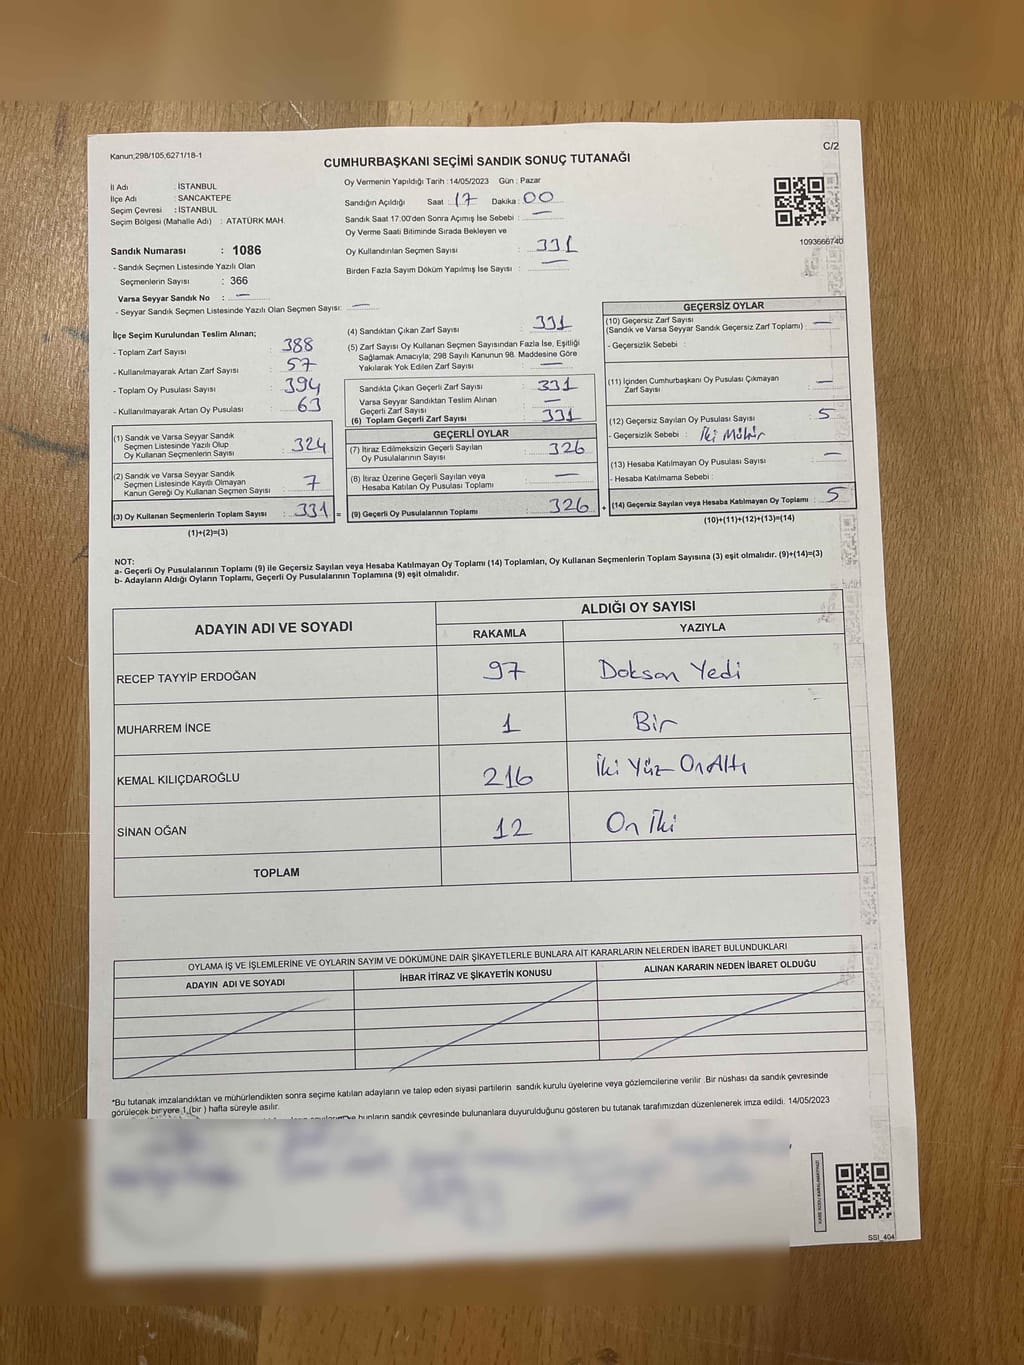 Kanun;298/105,6271/18-1
C/2
CUMHURBAŞKANI SEÇİMİ SANDIK SONUÇ TUTANAĞI
İl Adı : İSTANBUL
İlçe Adı : SANCAKTEPE
Seçim Çevresi : İSTANBUL
Seçim Bölgesi (Mahalle Adı) : ATATÜRK MAH.
Sandık Numarası : 1086
- Sandık Seçmen Listesinde Yazılı Olan
Seçmenlerin Sayısı : 366
Varsa Seyyar Sandık No : —
- Seyyar Sandık Seçmen Listesinde Yazılı Olan Seçmen Sayısı: —
Oy Vermenin Yapıldığı Tarih : 14/05/2023 Gün : Pazar
Sandığın Açıldığı Saat : 17 Dakika : 00
Sandık Saat 17:00'den Sonra Açımış İse Sebebi : —
Oy Verme Saati Bitiminde Sırada Bekleyen ve
Oy Kullandırılan Seçmen Sayısı : 331
Birden Fazla Sayım Döküm Yapılmış İse Sayısı : —
1093666740
İlçe Seçim Kurulundan Teslim Alınan;
- Toplam Zarf Sayısı : 388
- Kullanılmayarak Artan Zarf Sayısı : 57
- Toplam Oy Pusulası Sayısı : 394
- Kullanılmayarak Artan Oy Pusulası : 63
(1) Sandık ve Varsa Seyyar Sandık
Seçmen Listesinde Yazılı Olup
Oy Kullanan Seçmenlerin Sayısı : 324
(2) Sandık ve Varsa Seyyar Sandık
Seçmen Listesinde Kayıtlı Olmayan
Kanun Gereği Oy Kullanan Seçmen Sayısı : 7
(3) Oy Kullanan Seçmenlerin Toplam Sayısı : 331 =
(1)+(2)=(3)
(4) Sandıktan Çıkan Zarf Sayısı : 331
(5) Zarf Sayısı Oy Kullanan Seçmen Sayısından Fazla İse, Eşitliği
Sağlamak Amacıyla; 298 Sayılı Kanunun 98. Maddesine Göre
Yakılarak Yok Edilen Zarf Sayısı : —
Sandıkta Çıkan Geçerli Zarf Sayısı : 331
Varsa Seyyar Sandıktan Teslim Alınan
Geçerli Zarf Sayısı : —
(6) Toplam Geçerli Zarf Sayısı : 331
GEÇERLİ OYLAR
(7) İtiraz Edilmeksizin Geçerli Sayılan
Oy Pusulalarının Sayısı : 326
(8) İtiraz Üzerine Geçerli Sayılan veya
Hesaba Katılan Oy Pusulası Toplamı : —
(9) Geçerli Oy Pusulalarının Toplamı : 326 +
GEÇERSİZ OYLAR
(10) Geçersiz Zarf Sayısı
(Sandık ve Varsa Seyyar Sandık Geçersiz Zarf Toplamı) : —
- Geçersizlik Sebebi :
(11) İçinden Cumhurbaşkanı Oy Pusulası Çıkmayan
Zarf Sayısı : —
(12) Geçersiz Sayılan Oy Pusulası Sayısı : 5
- Geçersizlik Sebebi : İki Mühür
(13) Hesaba Katılmayan Oy Pusulası Sayısı : —
- Hesaba Katılmama Sebebi :
(14) Geçersiz Sayılan veya Hesaba Katılmayan Oy Toplamı : 5
(10)+(11)+(12)+(13)=(14)
NOT:
a- Geçerli Oy Pusulalarının Toplamı (9) ile Geçersiz Sayılan veya Hesaba Katılmayan Oy Toplamı (14) Toplamları, Oy Kullanan Seçmenlerin Toplam Sayısına (3) eşit olmalıdır. (9)+(14)=(3)
b- Adayların Aldığı Oyların Toplamı, Geçerli Oy Pusulalarının Toplamına (9) eşit olmalıdır.
ADAYIN ADI VE SOYADI
ALDIĞI OY SAYISI
RAKAMLA YAZIYLA
RECEP TAYYİP ERDOĞAN 97 Doksan Yedi
MUHARREM İNCE 1 Bir
KEMAL KILIÇDAROĞLU 216 İki Yüz On Altı
SİNAN OĞAN 12 On İki
TOPLAM
OYLAMA İŞ VE İŞLEMLERİNE VE OYLARIN SAYIM VE DÖKÜMÜNE DAİR ŞİKAYETLERLE BUNLARA AİT KARARLARIN NELERDEN İBARET BULUNDUKLARI
ADAYIN ADI VE SOYADI İHBAR İTİRAZ VE ŞİKAYETİN KONUSU ALINAN KARARIN NEDEN İBARET OLDUĞU
*Bu tutanak imzalandıktan ve mühürlendikten sonra seçime katılan adayların ve talep eden siyasi partilerin sandık kurulu üyelerine veya gözlemcilerine verilir .Bir nüshası da sandık çevresinde
görülecek bir yere 1 (bir ) hafta süreyle asılır.
bunların sandık çevresinde bulunanlara duyurulduğunu gösteren bu tutanak tarafımızdan düzenlenerek imza edildi. 14/05/2023
SSI_404